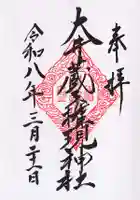 奉拝
大井蔵王権現神社
令和八年三月